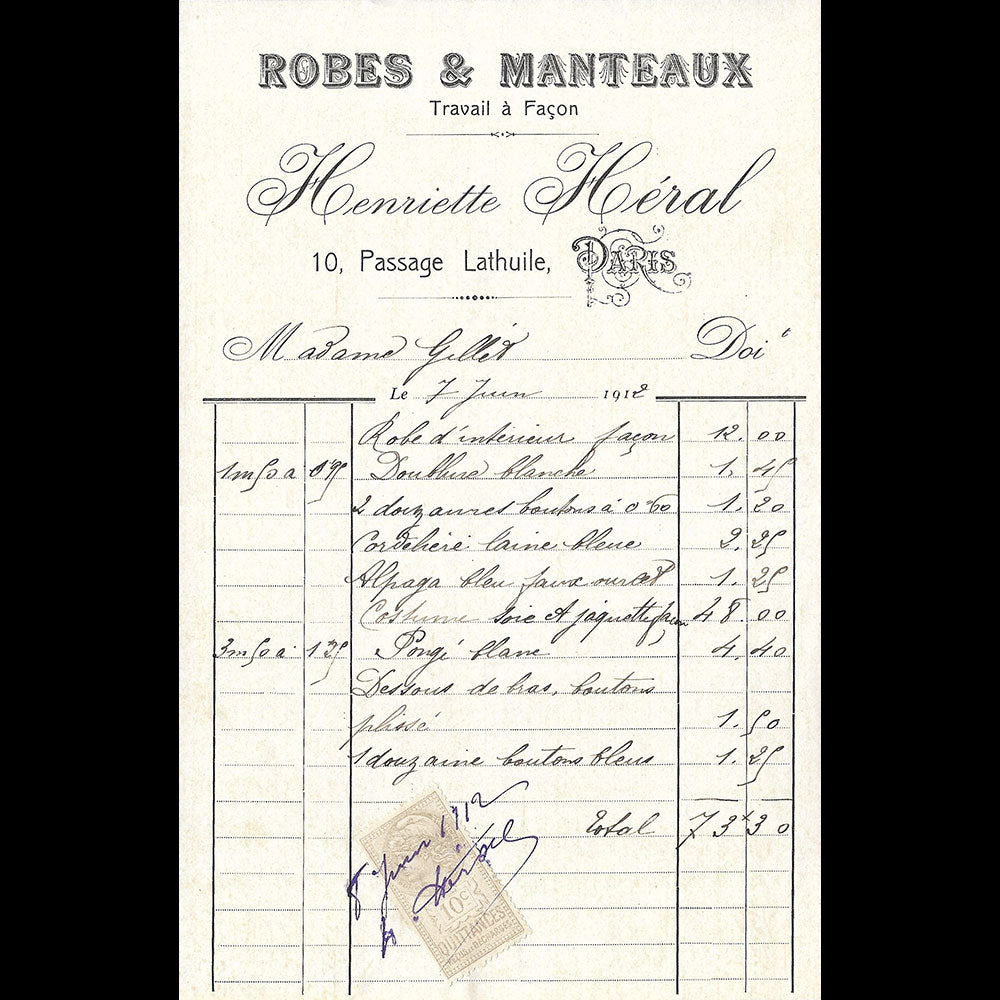 ROBES & MANTEAUX
Travail à Façon
Henriette Héral
10, Passage Lathuile, PARIS
Madame Gillet Doit
Le 7 Juin 1912
Robe d'intérieur façon 12.00
1m50 à 0.95 Doublure blanche 1.45
2 douzaines boutons à 0.60 1.20
Cordelière laine bleue 2.25
Alpaga bleu faux ourlet 1.25
Costume soie et jaquette façon 48.00
3m50 à 1.25 Pongé blanc 4.40
Dessous de bras, boutons
plissé 1.50
1 douzaine boutons bleus 1.25
Total 73.30
8 Juin 1912
H. Héral
10c
QUITTANCES
REÇUS & DÉCHARGES